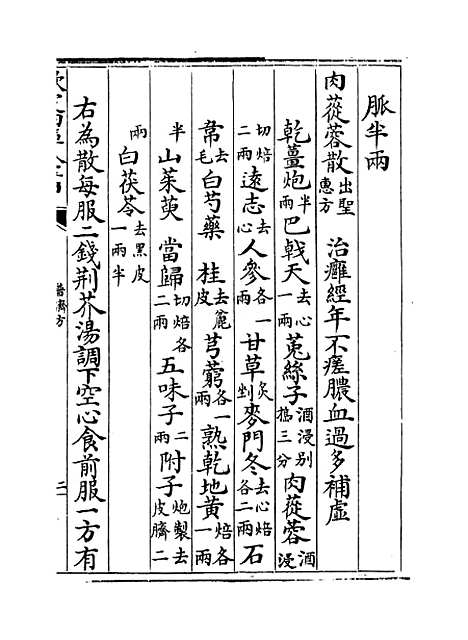 脈半兩
肉蓯蓉散出聖惠方 治癰經年不瘥膿血過多補虛
乾薑炮半兩 巴戟天去心一兩 菟絲子酒浸别搗三分 肉蓯蓉酒浸
切焙二兩 遠志去心 人參各一兩 甘草炙剉 麥門冬去心焙各二兩 石
韋去毛 白芍藥 桂去麄皮 芎藭各一兩 熟乾地黄焙各一兩
半 山茱萸 當歸切焙各二兩 五味子二兩 附子炮製去皮臍二
兩 白茯苓去黑皮一兩半
右為散每服二錢荆芥湯調下空心食前服一方有
普濟方